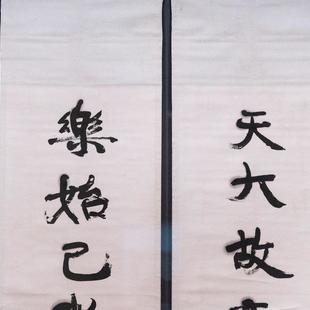 天大故
樂始己